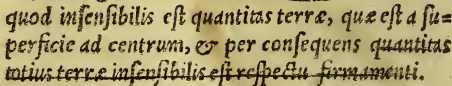 quod inſenſibilis eſt quantitas terræ, quæ eſt a ſu-
perficie ad centrum, & per conſequens quantitas
totius terræ inſenſibilis eſt reſpectu firmamenti.